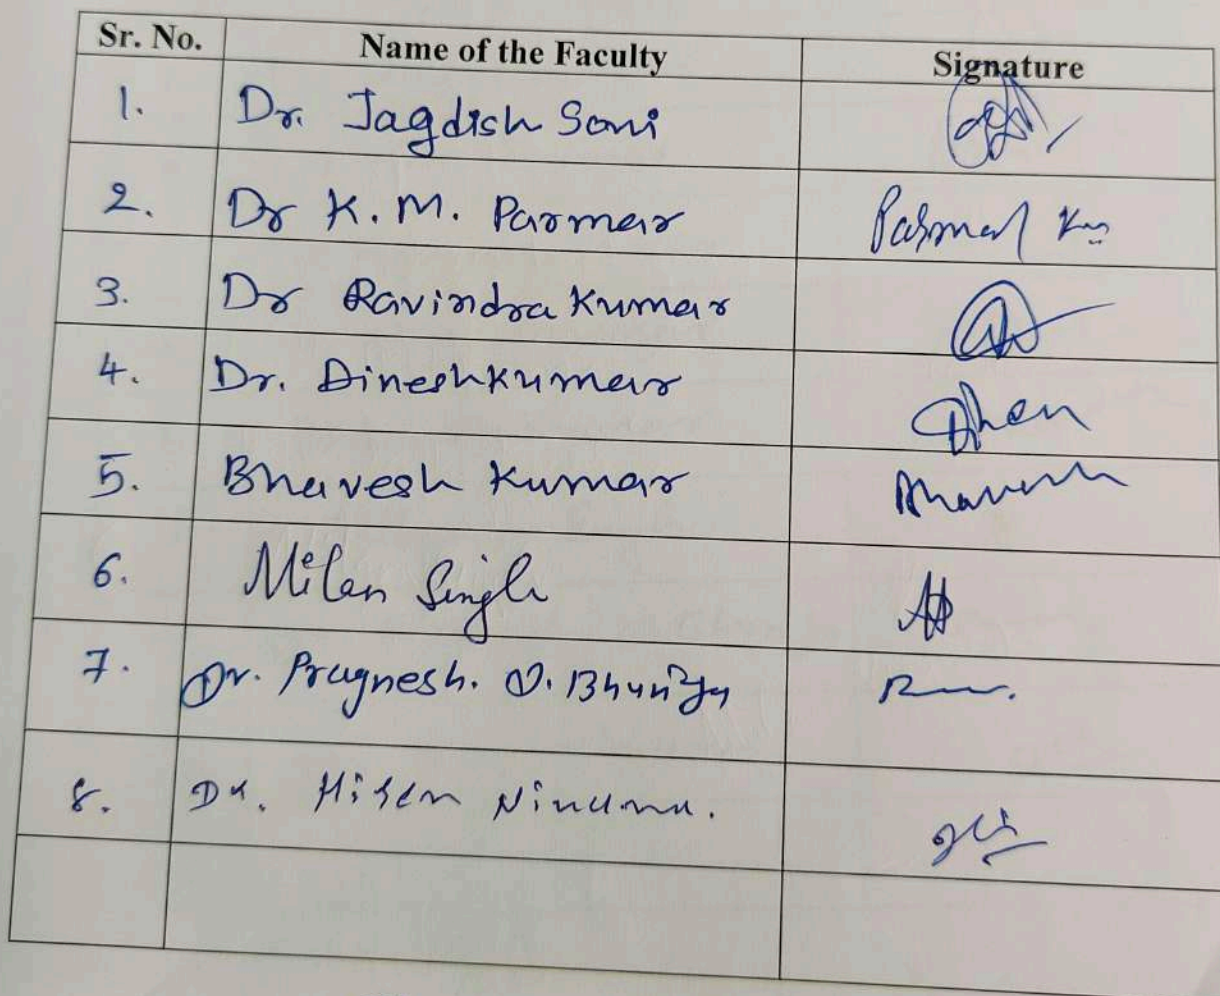 Sr. No. Name of the Faculty Signature
1. Dr. Jagdish Soni
2. Dr K. M. Parmar Parmar Km
3. Dr Ravindra Kumar
4. Dr. Dineshkumar
5. Bhavesh Kumar Bhavesh
6. Milan Singh
7. Dr. Pragnesh. D.
8. Dr. Hiren Ninama.